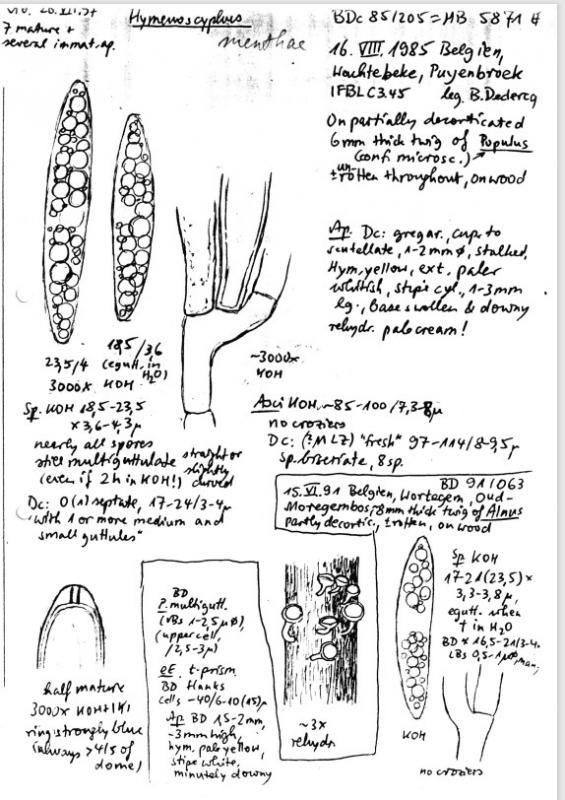 Hymenoscyphus
menthae
7 mature +
several immat. ap.
BDc 85/205 = HB 5871 #
16. VIII. 1985 Belgien,
Wachtebeke, Puyenbroek
IFBL C3.45 leg. B. Declercq
On partially decorticated
6mm thick twig of Populus
(conf. microsc.)
± un rotten throughout, on wood
Ap. Dc: gregar., cup. to
scutellate, 1-2mm ø, stalked,
Hym. yellow, ext. paler
whitish, stipe cyl., 1-3mm
lg., base swollen & downy
rehydr. pale cream!
23,5/4
3000x KOH
18,5/3,6
(egutt. in H2O)
~3000x
KOH
Sp. KOH 18,5-23,5
x 3,6-4,3µ
nearly all spores
still multiguttulate straight or
(even if 2h in KOH!) slightly curved
Dc: 0(1) septate, 17-24/3-4µ
"with 1 or more medium and
small guttules"
Asci KOH ~85-100/7,3-8µ
no croziers
Dc: (±MLZ) "fresh" 97-114/8-9,5µ
Sp. biseriate, 8 sp.
BD 91/063
15. VI. 91 Belgien, Wortegem, Oud-
Moregembos, 8mm thick twig of Alnus
partly decortic., ± rotten, on wood
half mature
3000x KOH + IKI
ring strongly blue
(always >4/5 of
dome)
BD
P. multigutt.
(VBs 1-2,5µ ø)
(upper cell,
/2,5-3µ)
eE. t. prism.
BD Flanks
cells -40/6-10(15)µ
Ap BD 1,5-2mm,
-3mm high,
hym. pale yellow,
stipe white,
minutely downy
~3x
rehydr.
KOH
Sp KOH
17-21(23,5) x
3,3-3,8µ,
egutt. when
† in H2O
BD * 16,5-21/3-4.
LBs 0,5-1µø, many
no croziers